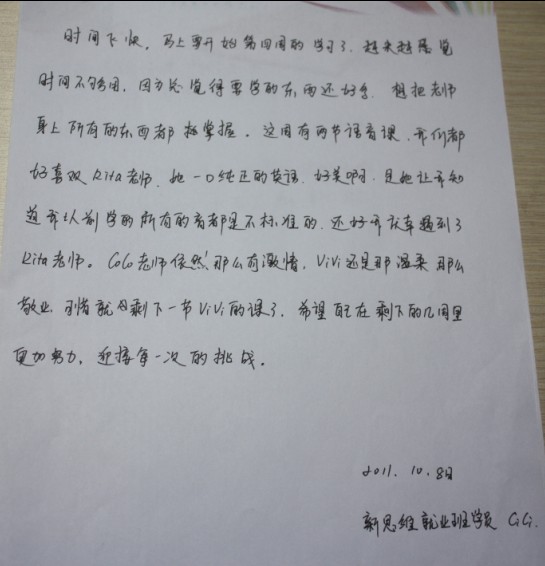 时间飞快，马上要开始第四周的学习了，越来越感觉
时间不够用，因为总觉得要学的东西还好多，想把老师
身上所有的东西都掌握。这周有两节语音课，我们都
好喜欢Rita老师，她一口纯正的英语，好美啊，是她让我知
道我以前学的所有的音都是不标准的，还好我庆幸遇到了
Rita老师。CoCo老师依然那么有激情，ViVi还是那温柔那么
敬业，可惜就只剩下一节ViVi的课了，希望自己在剩下的几周里
更加努力，迎接每一次的挑战。
2011.10.8日
新思维就业班学员 CiCi.